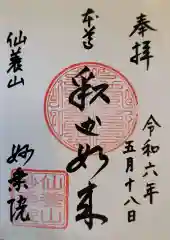 奉拝
令和六年
五月十八日
本尊
釈迦如来
仙養山
妙楽院